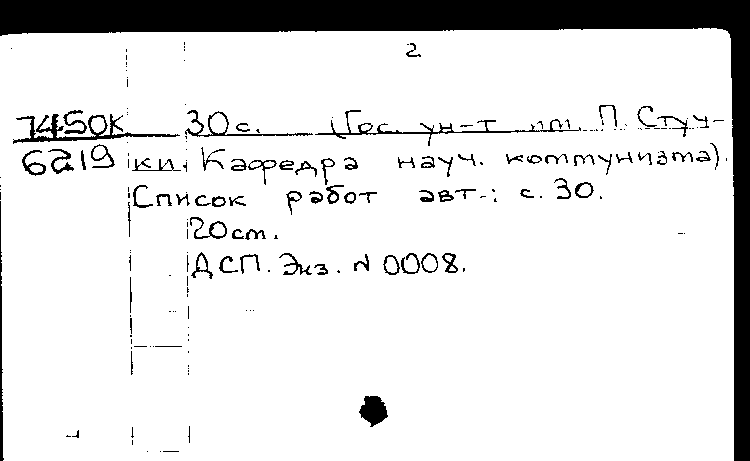 2
7450К 30с. (Гос. ун-т им. П. Стуч-
6219 ки. Кафедра науч. коммунизма).
Список работ авт.: с. 30.
20см.
ДСП. Экз. N 0008.